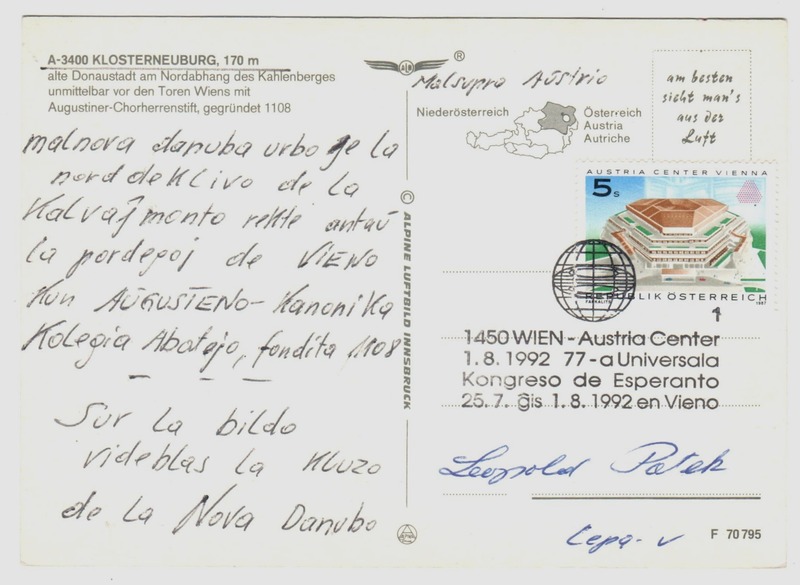 A-3400 KLOSTERNEUBURG, 170 m
alte Donaustadt am Nordabhang des Kahlenberges
unmittelbar vor den Toren Wiens mit
Augustiner-Chorherrenstift, gegründet 1108
malnova danuba urbo ĉe la
nord deklivo de la
Kalvaĵmonto rekte antaŭ
la pordegoj de VIENO
kun AUGUSTENO-Kanonika
Kolegia Abatejo, fondita 1108
Sur la bildo
videblas la kluzo
de la Nova Danubo
© ALPINE LUFTBILD INNSBRUCK
®
Malsupra Aŭstrio
Niederösterreich
Österreich
Austria
Autriche
am besten
sieht man's
aus der
Luft
AUSTRIA CENTER VIENNA
5 S
REPUBLIK ÖSTERREICH
1987
1
1450 WIEN-Austria Center
1.8.1992 77-a Universala
Kongreso de Esperanto
25.7. ĝis 1.8.1992 en Vieno
Leopold Patek
F 70 795